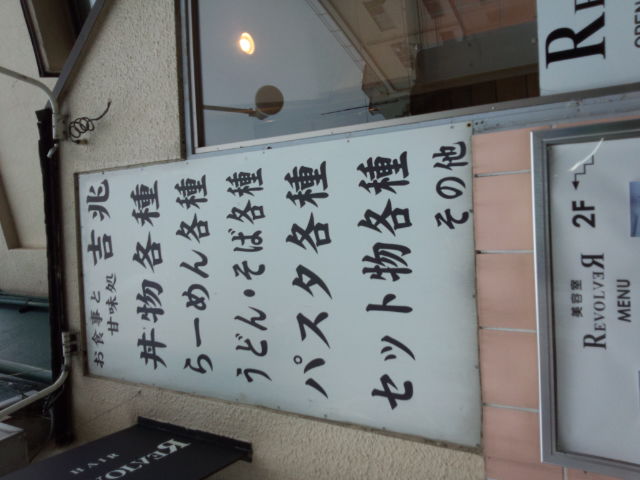 お食事と
甘味処
吉兆
丼物各種
らーめん各種
うどん・そば各種
パスタ各種
セット物各種
その他
REV
OPEN
美容室
REVOLVER
2F
MENU
HAIR
REVOLV